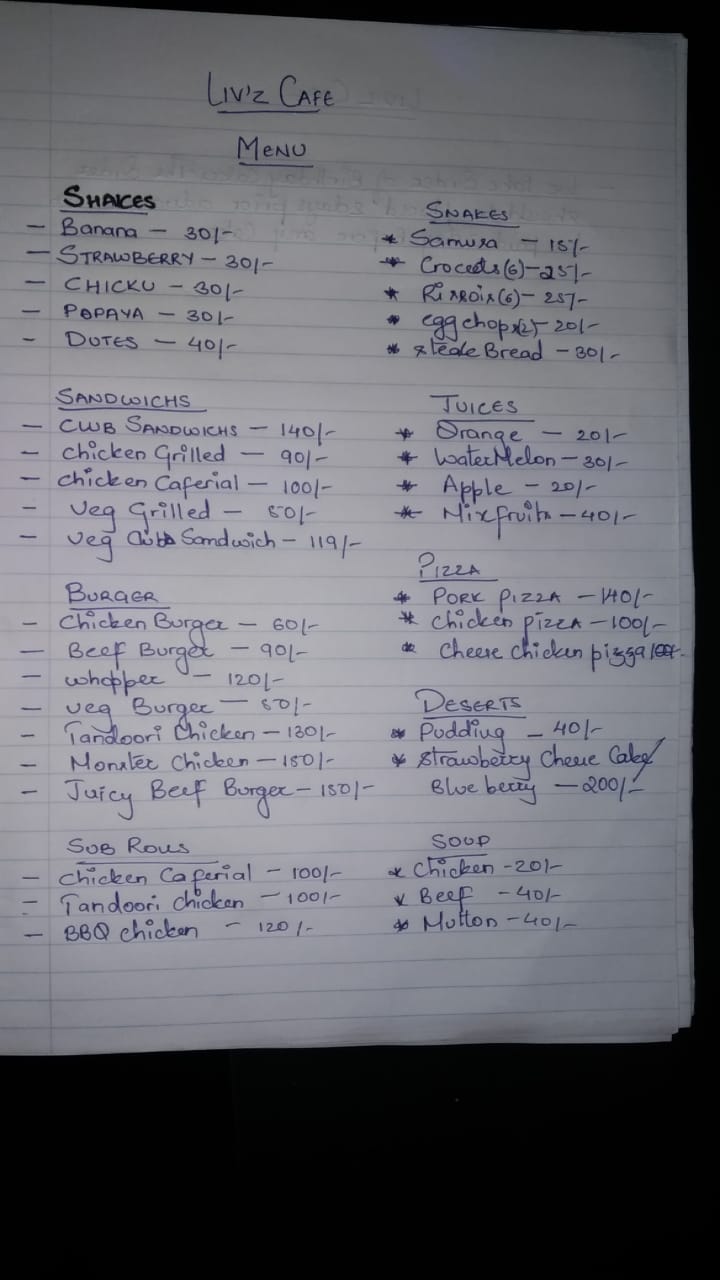 LIV'Z CAFE
MENU
SHAKES
- Banana - 30/-
- STRAWBERRY - 30/-
- CHICKU - 30/-
- POPAYA - 30/-
- DUTES - 40/-
SANDWICHS
- CWB SANDWICHS - 140/-
- Chicken Grilled - 90/-
- Chicken Caferial - 100/-
- Veg Grilled - 50/-
- Veg Club Sandwich - 119/-
BURGER
- Chicken Burger - 60/-
- Beef Burger - 90/-
- Whopper - 120/-
- Veg Burger - 50/-
- Tandoori Chicken - 130/-
- Monster Chicken - 150/-
- Juicy Beef Burger - 150/-
SUB ROLLS
- Chicken Caferial - 100/-
- Tandoori Chicken - 100/-
- BBQ chicken - 120/-
SNAKES
* Samusa - 15/-
* Croceets(6) - 25/-
* Rissois(6) - 25/-
* egg chops(2) - 20/-
* steake Bread - 30/-
JUICES
* Orange - 20/-
* WaterMelon - 30/-
* Apple - 20/-
* Mixfruits - 40/-
PIZZA
* PORK PIZZA - 140/-
* Chicken pizza - 100/-
* Cheese chicken pizza
DESERTS
* Pudding - 40/-
* Strawberry Cheese Cake/
Blue berry - 200/-
SOUP
* Chicken - 20/-
* Beef - 40/-
* Mutton - 40/-